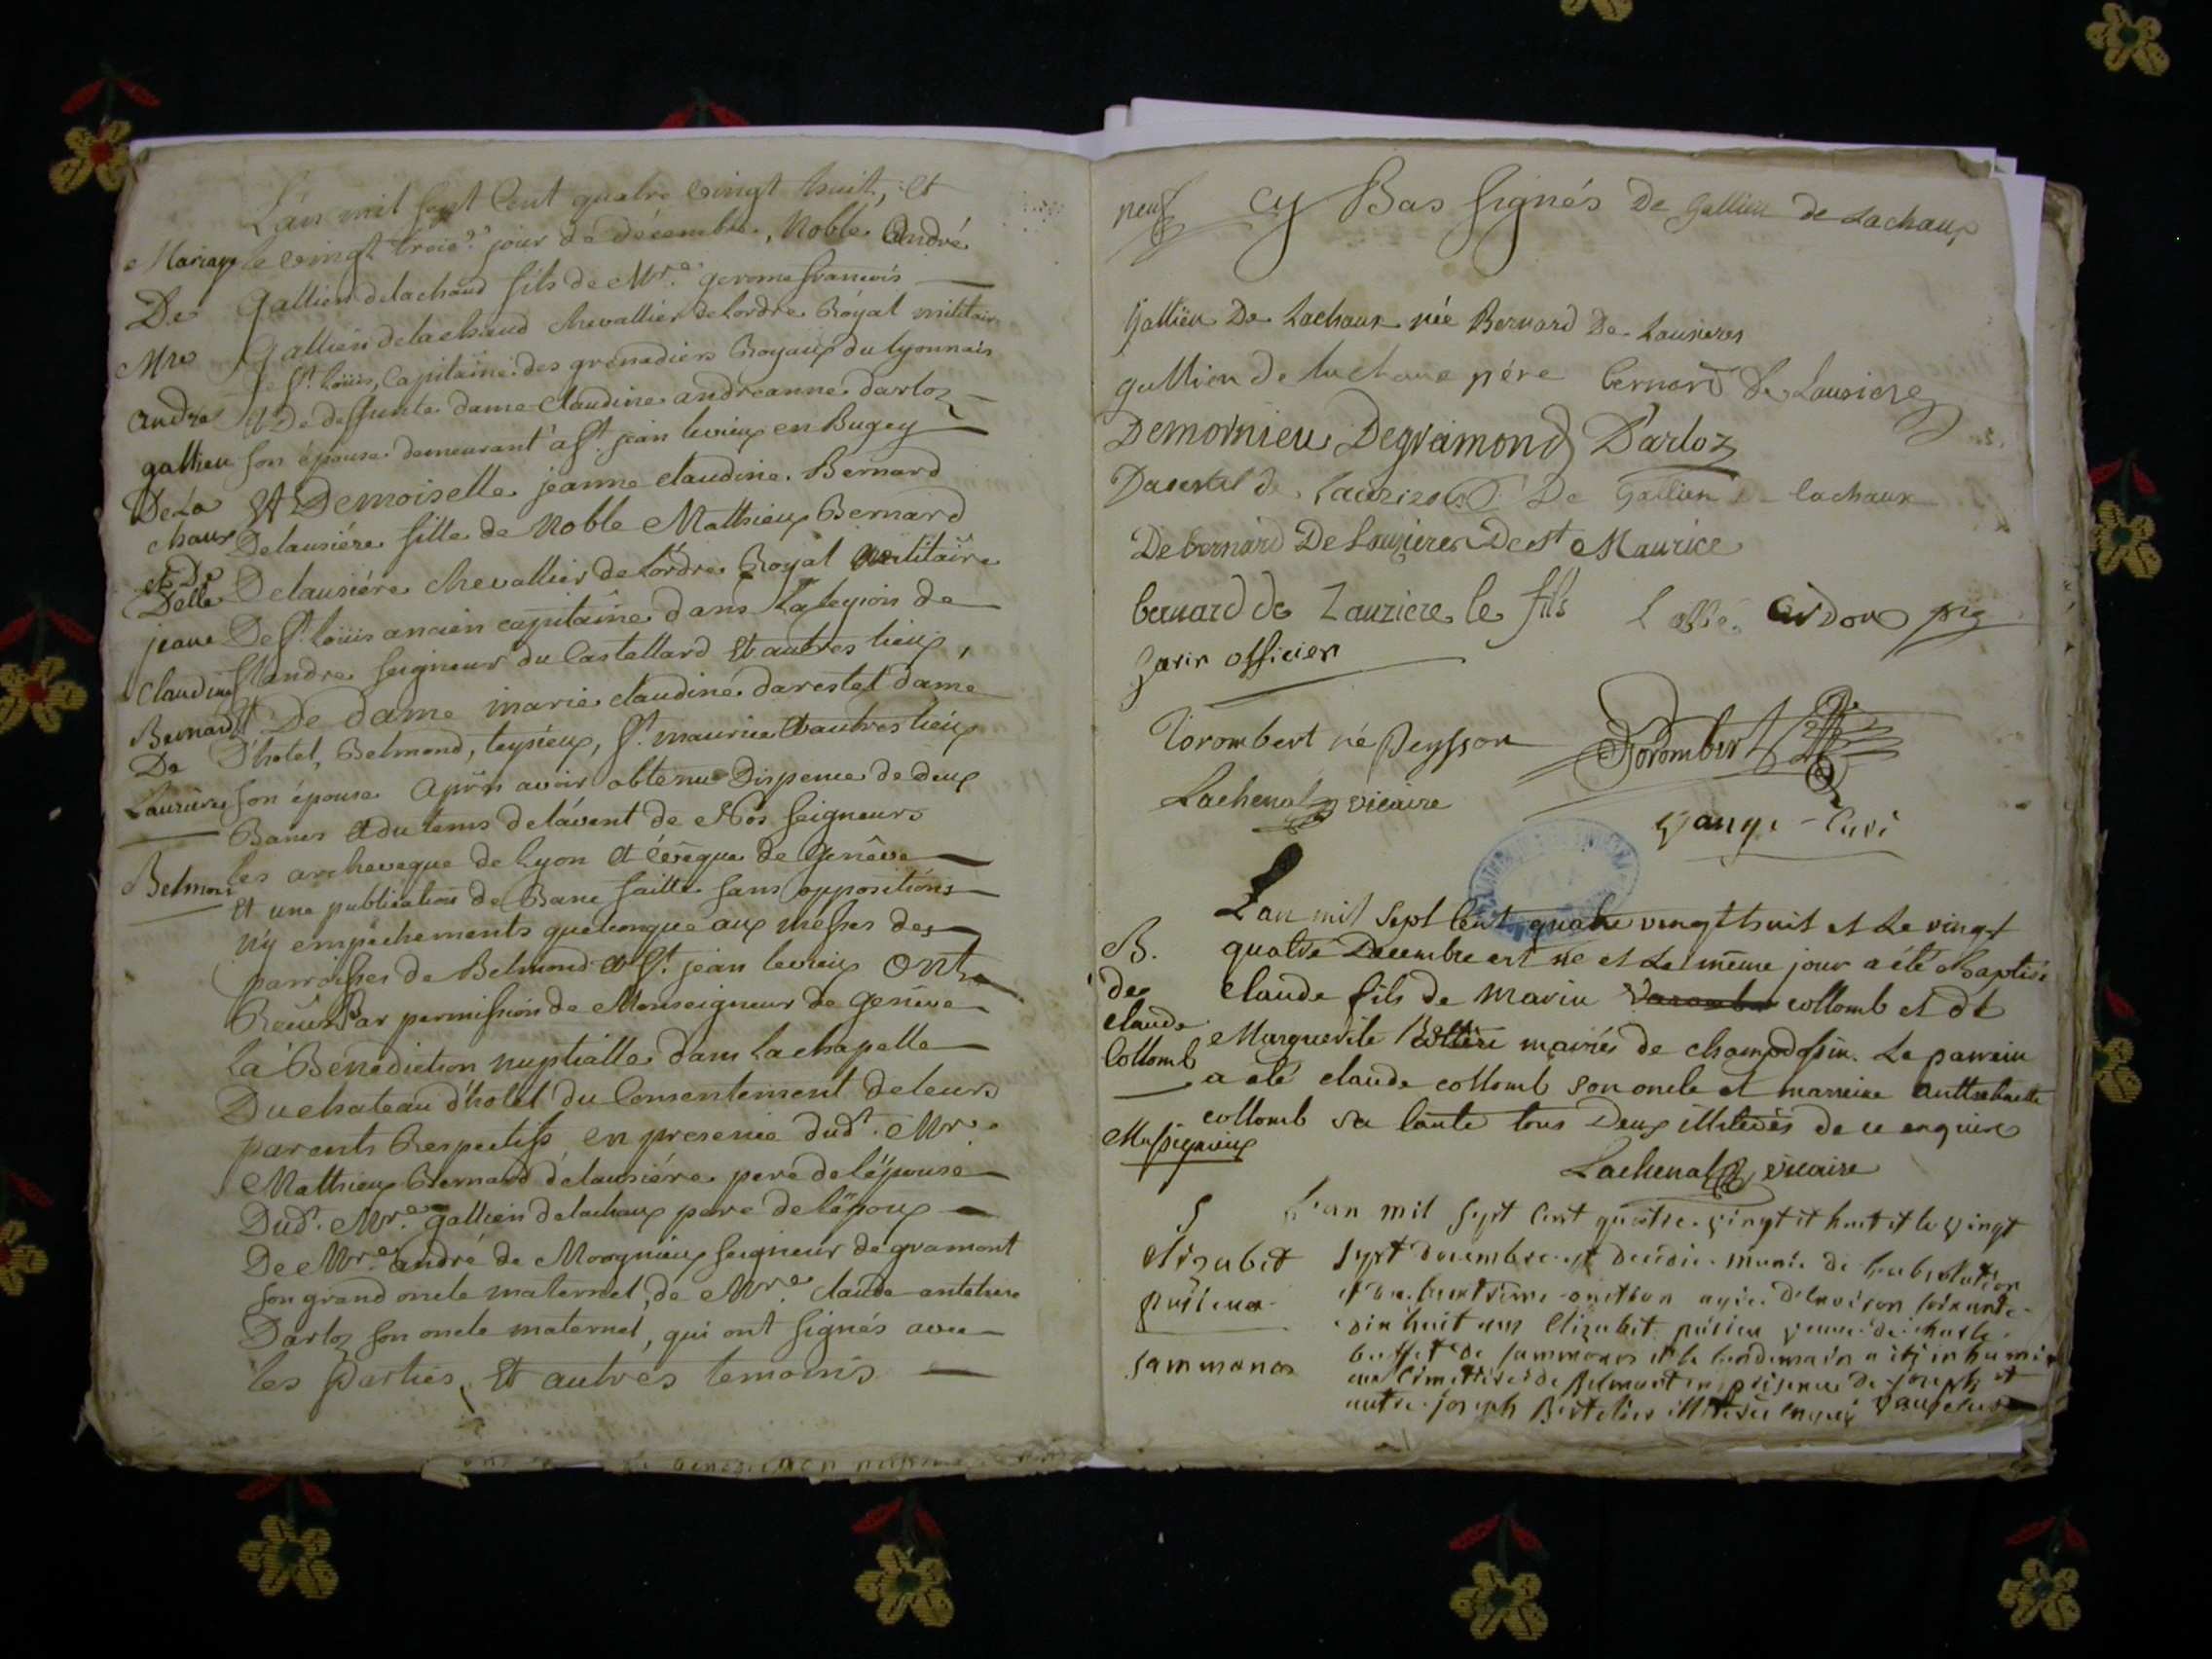 L'an mil sept Cent quatre vingt huit, et
le vingt trois jour de décembre, Noble André
Gallien delachaud fils de Mre gerome francois
Gallien delachaud chevallier de Lordre Royal militaire
de St Loüis, Capitaine des grenadiers Royaux du lyonnais
et De deffunte dame claudine andréanne darloz
son épouse demeurant a St jean levieux en Bugey
Et Demoiselle jeanne claudine Bernard
Delausiére fille de Noble Mathieux Bernard
Delausiére chevallier de Lordre Royal militaire
De St loüis ancien capitaine dans La legion de
St andre seigneur du Castellard et autres lieux,
Et De dame marie claudine darestel dame
D'hotel, Belmond, leysieux, St maurice et autres lieux
son épouse apres avoir obtenu Dispence de deux
Bancs et du tems delavent de Nos Seigneurs
les archeveque de lyon et évêque de genêve
et une publication de Banc faitte sans oppositions
n'y empechements quelconque aux messes des
parroisses de Belmond et St jean levieux ont
Reçus Par permission de Monseigneur de geneve
La Bénédiction nuptialle dans la chapelle
Du chateau d'hotel du Consentement de leurs
parents Respectifs en presence dud. Mre
Mathieux Bernard delausiére pere de l'épouse
Dud. Mre gallien delachaux pere de l'époux
De Mre andré de Mornieux seigneur degramont
son grand oncle maternel, de Mre claude
Darloz son oncle maternel, qui ont signés avec
les parties, Et autres temoins
Mariage
De
Mre
andre
gallien
De La
chaux
et De
Delle
jeane
Claudine
Bernard
De
Lauziere
Belmon
neuf
cy Bas signés De Gallien de Lachaux
Gallien De Lachaux née Bernard De Lausieres
gallien de lachaux pére bernard de Lausiere
Demornieu Degramond Darloz
Darestel de De Gallien De lachaux
De bernard De Louzieres De st Maurice
bernard de Lauziere le fils L'abbé
officier
Torombert né Peysson Torombert
Lachenal vicaire
Gauge Curé
L'an mil sept Cent quatre vingt huit et Le vingt
quatre Decembre est né et Le même jour a été Baptisé
claude fils de marin collomb et de
Marguerite mariés de champdossin. Le parrein
a été claude collomb son oncle et marreine
collomb sa tante tous Deux illiterés de ce enquire
Lachenal vicaire
B.
de
claude
Collomb
Massignieux
L'an mil sept Cent quatre vingt et huit et le vingt
sept decembre est decedée munie de l'absolution
et de l'extreme onction agée d'environ soixante
dix huit ans Elizabet veuve de
buffet de sammonos et le lendemain a été inhumé
au Cimettiere de Belmont en présence de joseph et
autre joseph Bertelier illiterés enquis
S
Elizabet
sammonos